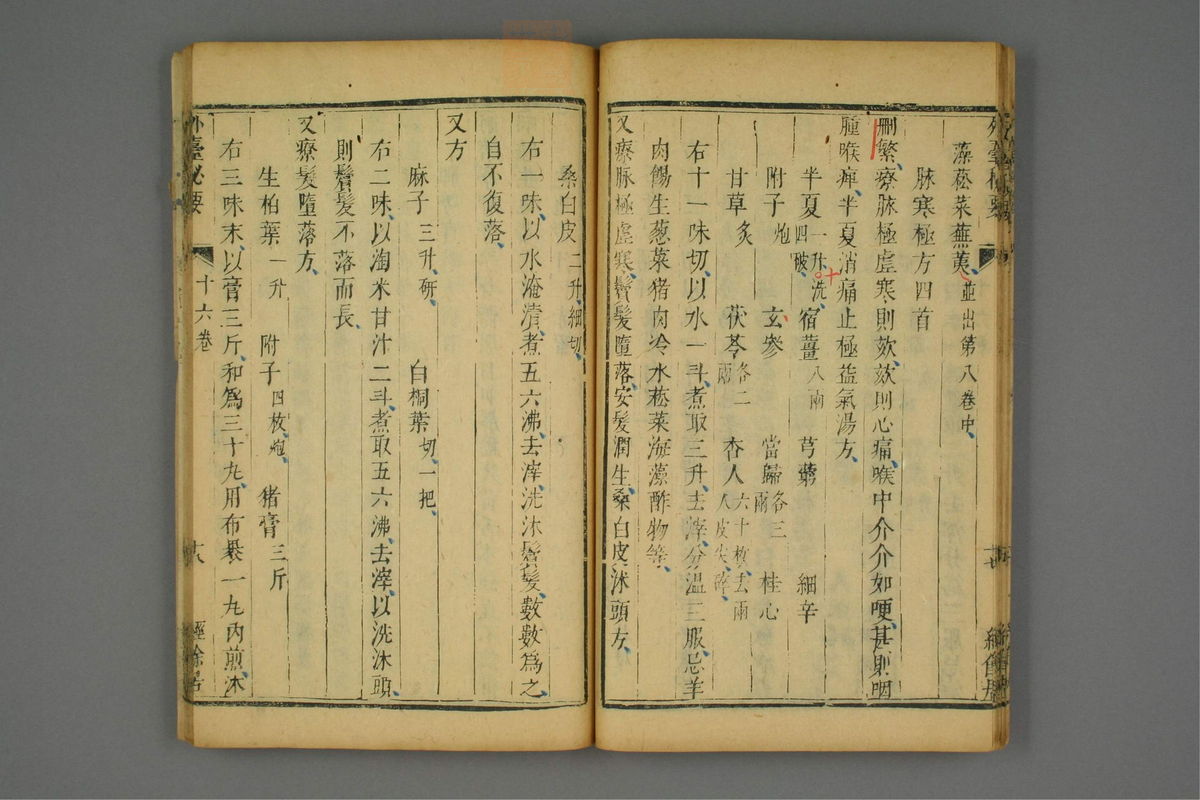 藻菘菜蕪荑並出第八卷中
脉寒極方四首
刪繁療脉極虛寒則欬欬則心痛喉中介介如哽甚則咽
腫喉痺半夏消痛止極益氣湯方
半夏一升洗四破 宿薑八兩 芎藭 細辛
附子炮 玄參 當歸各三兩 桂心
甘草炙 茯苓各二兩 杏人六十枚去兩人皮尖碎
右十一味切以水一斗煮取三升去滓分溫三服忌羊
肉餳生葱菜猪肉冷水菘菜海藻酢物等
又療脉極虛寒鬢髮墮落安髮潤生桑白皮沐頭方
桑白皮二升細切
右一味以水淹漬煮五六沸去滓洗沐鬢髮數數爲之
自不復落
又方
麻子三升研 白桐葉切一把
右二味以淘米甘汁二斗煮取五六沸去滓以洗沐頭
則鬢髮不落而長
又療髮墮落方
生柏葉一升 附子四枚炮 猪膏三斤
右三味末以膏三斤和爲三十丸用布褁一丸內煎沐
外臺秘要 十六卷 十八 經餘居